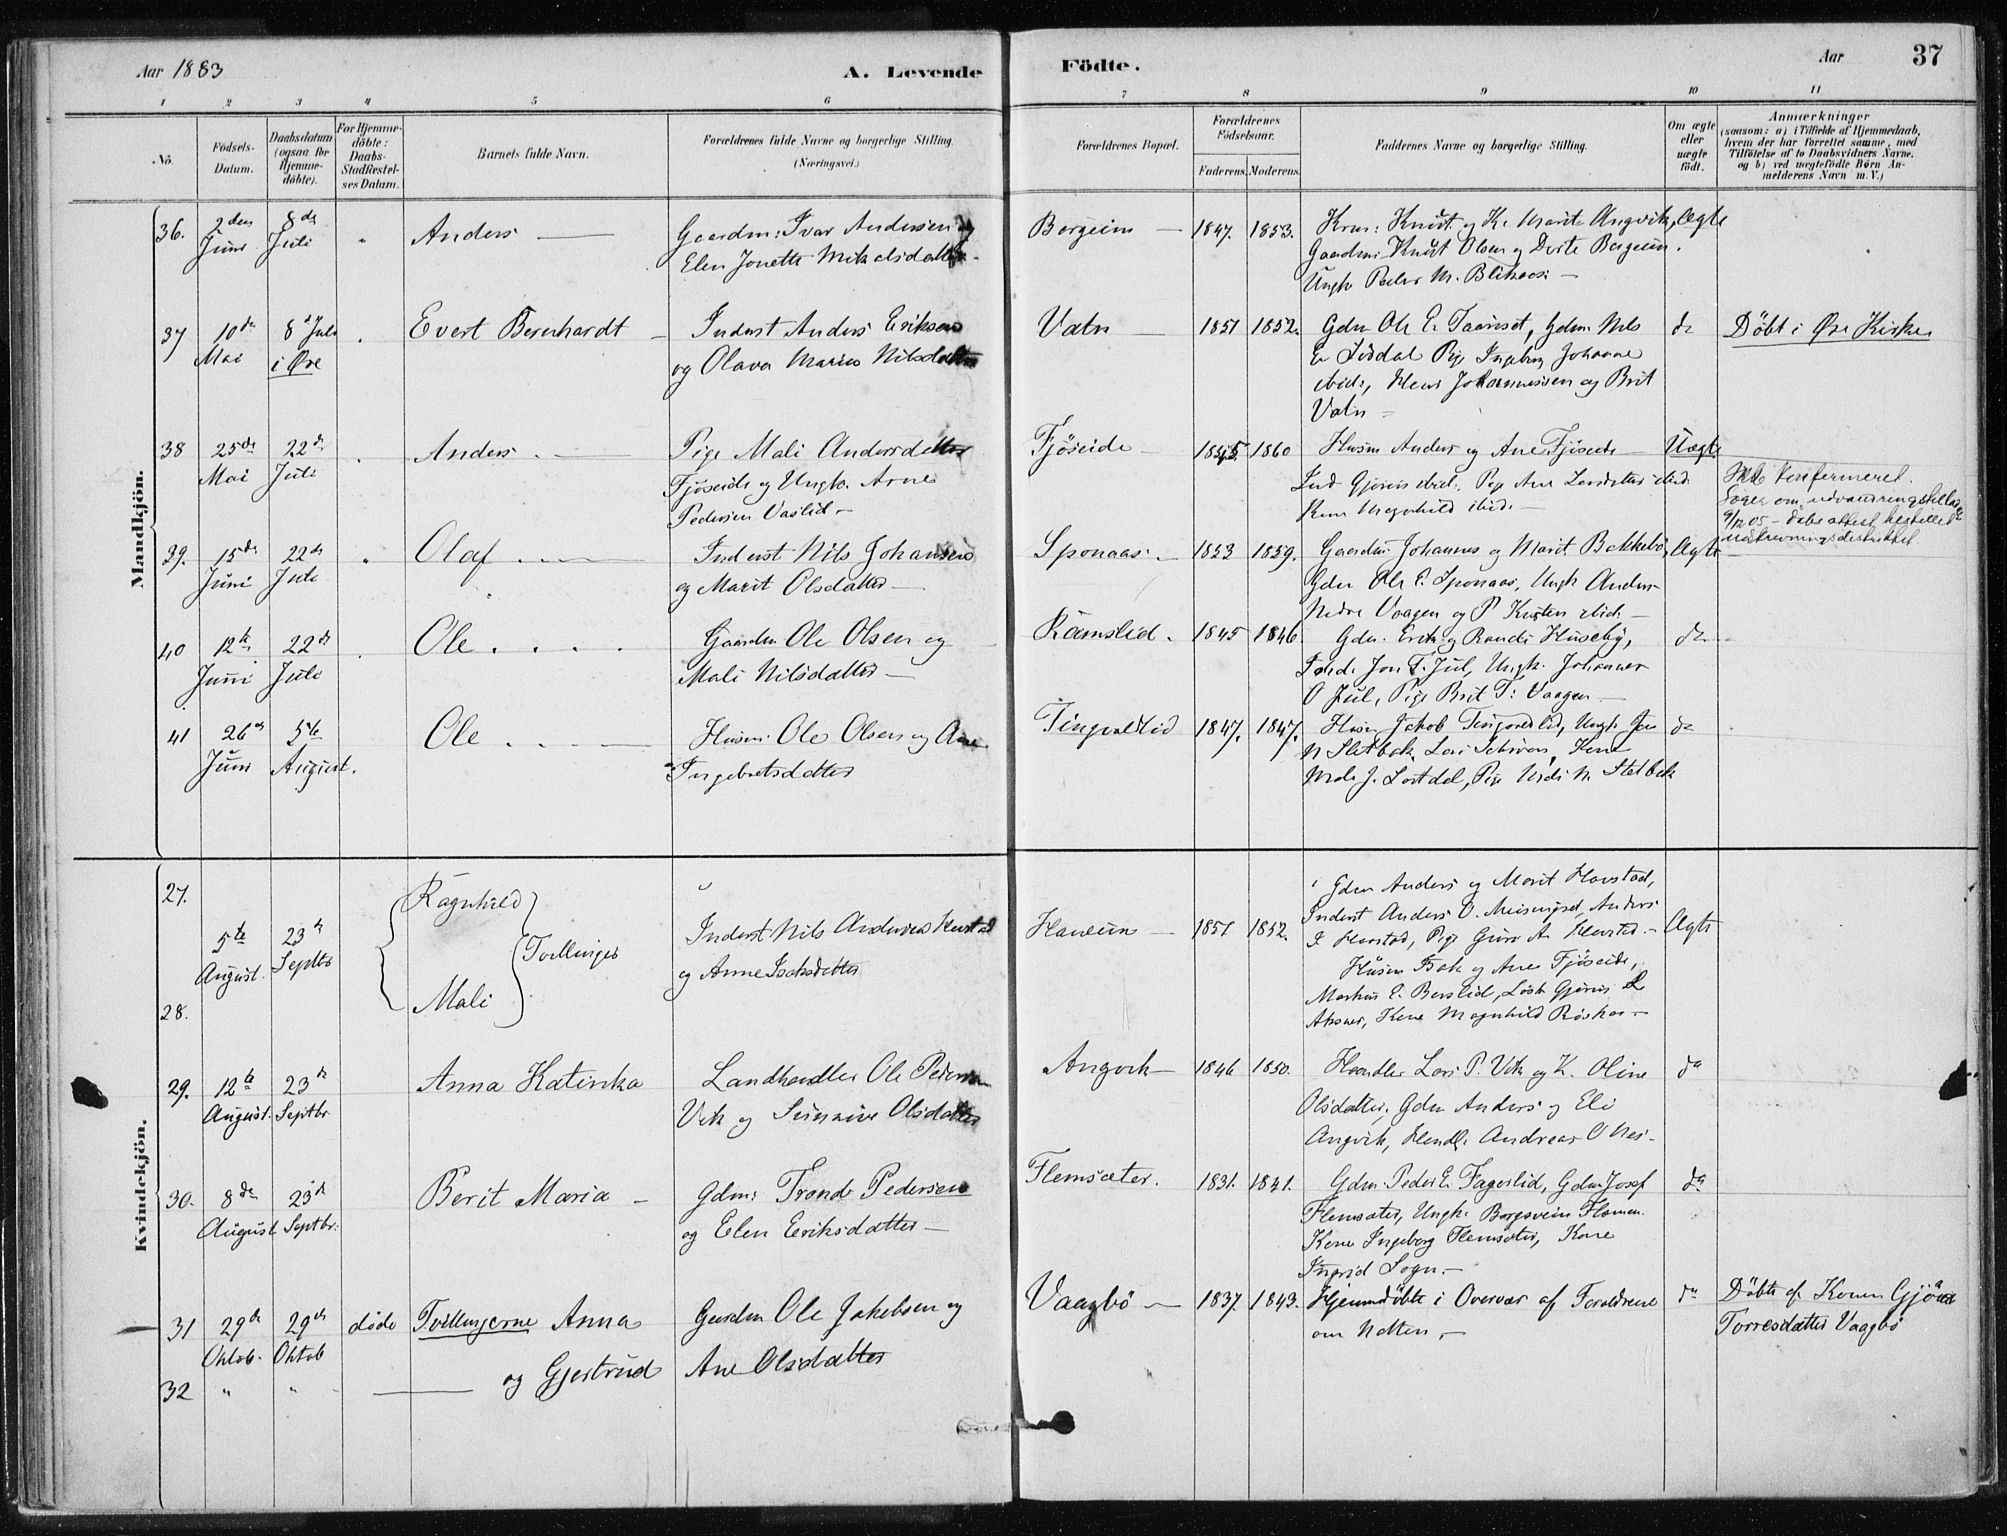 Aar 1883
A. Levende
Födte.
Aar
37
1 2 3 4 5 6 7 8 9 10 11
No.
Födsels-
Datum.
Daabsdatum
(ogsaa for
Hjemme-
döbte).
For Hjemme-
döbte:
Daabs-
Stadfæstel-
ses Datum.
Barnets fulde Navn.
Forældrenes fulde Navne og borgerlige Stilling.
(Næringsvei.)
Forældrenes Bopæl.
Forældrenes
Födselsaar.
Faderens. Moderens.
Faddernes Navne og borgerlige Stilling.
Om ægte
eller
uægte
födt.
Anmærkninger
(saasom: a) i Tilfælde af Hjemmedaab,
hvem der har forrettet samme, med
Tilföielse af to Daabsvidners Navne.
og b) ved uægtefödte Börn An-
melderens Navn m. V.)
Mandkjön.
36. 2den Juni 8de Juli " Anders —
Gaardm: Ivar Andersen og
Elen Jonette Mikalsdatter.
Bergeim — 1847. 1853.
Krm: Knut og K. Marit Angvik,
Gaardm: Knut Olsen og Dorte Bergeim.
Ungk Peder M. Blikaas —
Ægte
37 10de Mai 8de Juli i Øre Evert Bernhardt —
Inderst Anders Eriksen
og Olava Maria Nilsdatter
Vatn — 1851 1852.
Gdm Ole E. , Gdm. Nils
E. Pige Ingeborg Johanne
ibid., Johannessen og Brit
Vatn —
do
Döbt i Øre Kirke
38 25de Mai 22de Juli Anders. —
Pige Mali Andersdatter
Fjöseide og Ungk. Arne
Pedersen Vaslid —
Fjöseide — 1845. 1860
Husm Anders og Ane Fjöseide —
ibid. Pige Ane ibid.
Magnhild ibid. —
Uægte
Ikke konfirmeret.
om udvandringstilladelse
9/12 05 — daabsattest bestilles
39. 15de Juni 22de Juli " Olaf . —
Inderst Nils Johansen
og Marit Olsdatter —
Sponaas. — 1853 1859.
Gaardm. Johannes og Marit Bakkebö,
Gdm Ole E. Sponaas, Ungk Anders
Nedre Vaagen og P. ibid. —
Ægte —
40 12te Juni 22de Juli Ole . . . .
Gaardm Ole Olsen og
Mali Nilsdatter —
Ramslid. 1845 1846
Gdm. Erik og Randi Huseby,
Jon T. Jul, Ungk. Johannes
O Jul, Pige Brit T: Vaagen —
do
41 26de Juni 5te August. Ole . . —
Husm. Ole Olsen og Ane
Ingebretsdatter
Tingvoldlid 1847. 1847.
Husm Jakob Tingvoldlid, Ungk.
N Sletbak, Kone
J. , Pige N. Sletbak
do
Kvindekjön.
27.
28.
5te August. 23de Septbr
Ragnhild
Mali
Tvillinger
Inderst Nils Andersen
og Anne Isaksdatter
Haneim — 1851 1852.
Gdm Anders og Marit Havstad,
Inderst Anders O. Meisingset, Anders
Havstad, Pige Guro A. Havstad. —
Husm Isak og Ane Fjöseide,
Markus E. ,
, Kone Magnhild —
Ægte
29. 12te August. 23de Septbr. Anna Katinka
Landhandler Ole Pedersen
Vik og Olsdatter
Angvik — 1846 1850.
Handler Lars P. Vik og K. Oline
Olsdatter, Gdm Anders og Eli
Angvik, Handl. Andreas O Nes —
do
30. 8de August 23de Septbr. Berit Maria —
Gdm: Trond Pedersen
og Elen Eriksdatter —
Flemsæter. 1831. 1841.
Gdm. Peder E. Fagerlid, Gdm. Josef
Flemsæter, Ungk.
Kone Ingeborg Flemsæter, Kone
Ingrid Sogn. —
do
31 29de Oktob. 29de Oktob döde Tvillingerne Anna
32 " " — og Gjertrud
Gaardm Ole Jakobsen og
Ane Olsdatter
Vaagbö — 1837. 1843.
Hjemmdöbte i Overvær af Forældrene
om Natten. —
do
Döbte af Konen
Torresdatter Vaagbö